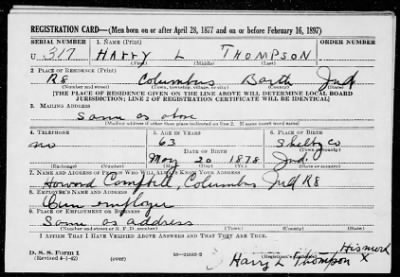 REGISTRATION CARD—(Men born on or after April 28, 1877 and on or before February 16, 1897)
SERIAL NUMBER 1. NAME (Print) ORDER NUMBER
U 317 HARRY L THOMPSON
(First) (Middle) (Last)
2. PLACE OF RESIDENCE (Print)
R8 Columbus Barth Ind
(Number and street) (Town, township, village, or city) (County) (State)
[THE PLACE OF RESIDENCE GIVEN ON THE LINE ABOVE WILL DETERMINE LOCAL BOARD
JURISDICTION; LINE 2 OF REGISTRATION CERTIFICATE WILL BE IDENTICAL]
3. MAILING ADDRESS
Same as above
(Mailing address if other than place indicated on line 2. If same insert word same)
4. TELEPHONE 5. AGE IN YEARS 6. PLACE OF BIRTH
no 63 Shelby Co
DATE OF BIRTH (Town or county)
May 20 1878 Ind.
(Exchange) (Number) (Mo.) (Day) (Yr.) (State or country)
7. NAME AND ADDRESS OF PERSON WHO WILL ALWAYS KNOW YOUR ADDRESS
Howard Campbell, Columbus Ind R8
8. EMPLOYER'S NAME AND ADDRESS
Own employer
9. PLACE OF EMPLOYMENT OR BUSINESS
Same as address
(Number and street or R. F. D. number) (Town) (County) (State)
I AFFIRM THAT I HAVE VERIFIED ABOVE ANSWERS AND THAT THEY ARE TRUE.
D. S. S. Form 1
(Revised 4-1-42) (over)
His mark
Harry L Thompson X